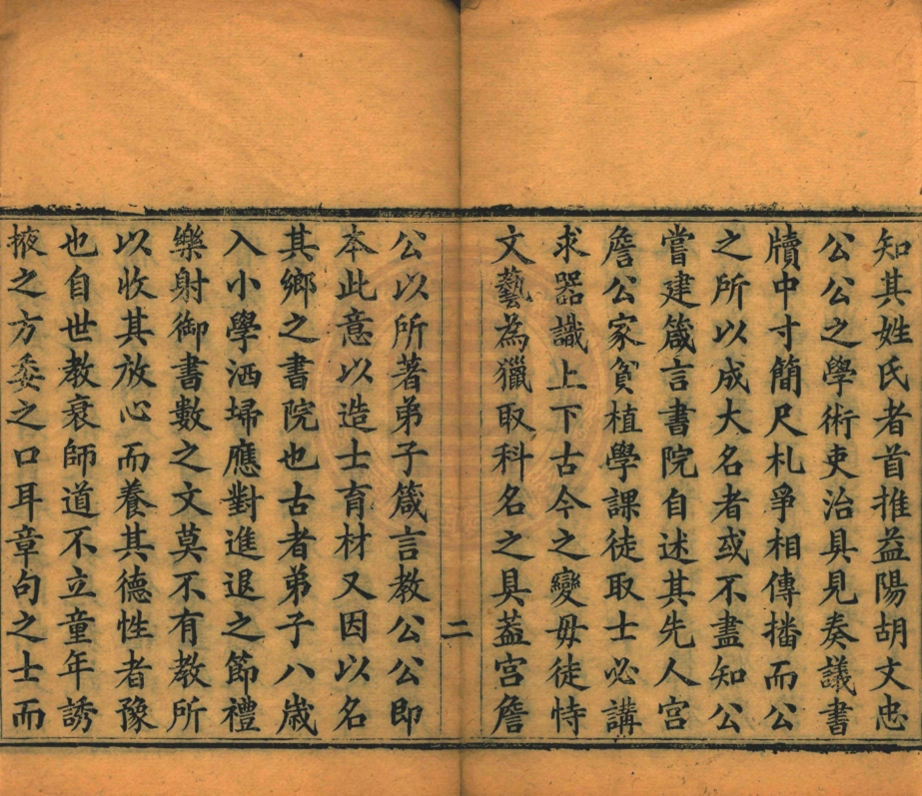 知其姓氏者首推益陽胡文忠
公公之學術吏治具見奏議書
牘中寸簡尺札爭相傳播而公
之所以成大名者或不盡知公
嘗建箴言書院自述其先人宮
詹公家貧植學課徒取士必講
求器識上下古今之變毋徒恃
文藝為獵取科名之具葢宮詹
二
公以所著弟子箴言教公公即
本此意以造士育材又因以名
其鄉之書院也古者弟子八歲
入小學洒埽應對進退之節禮
樂射御書數之文莫不有教所
以收其放心而養其德性者豫
也自世教衰師道不立童年誘
掖之方委之口耳章句之士而